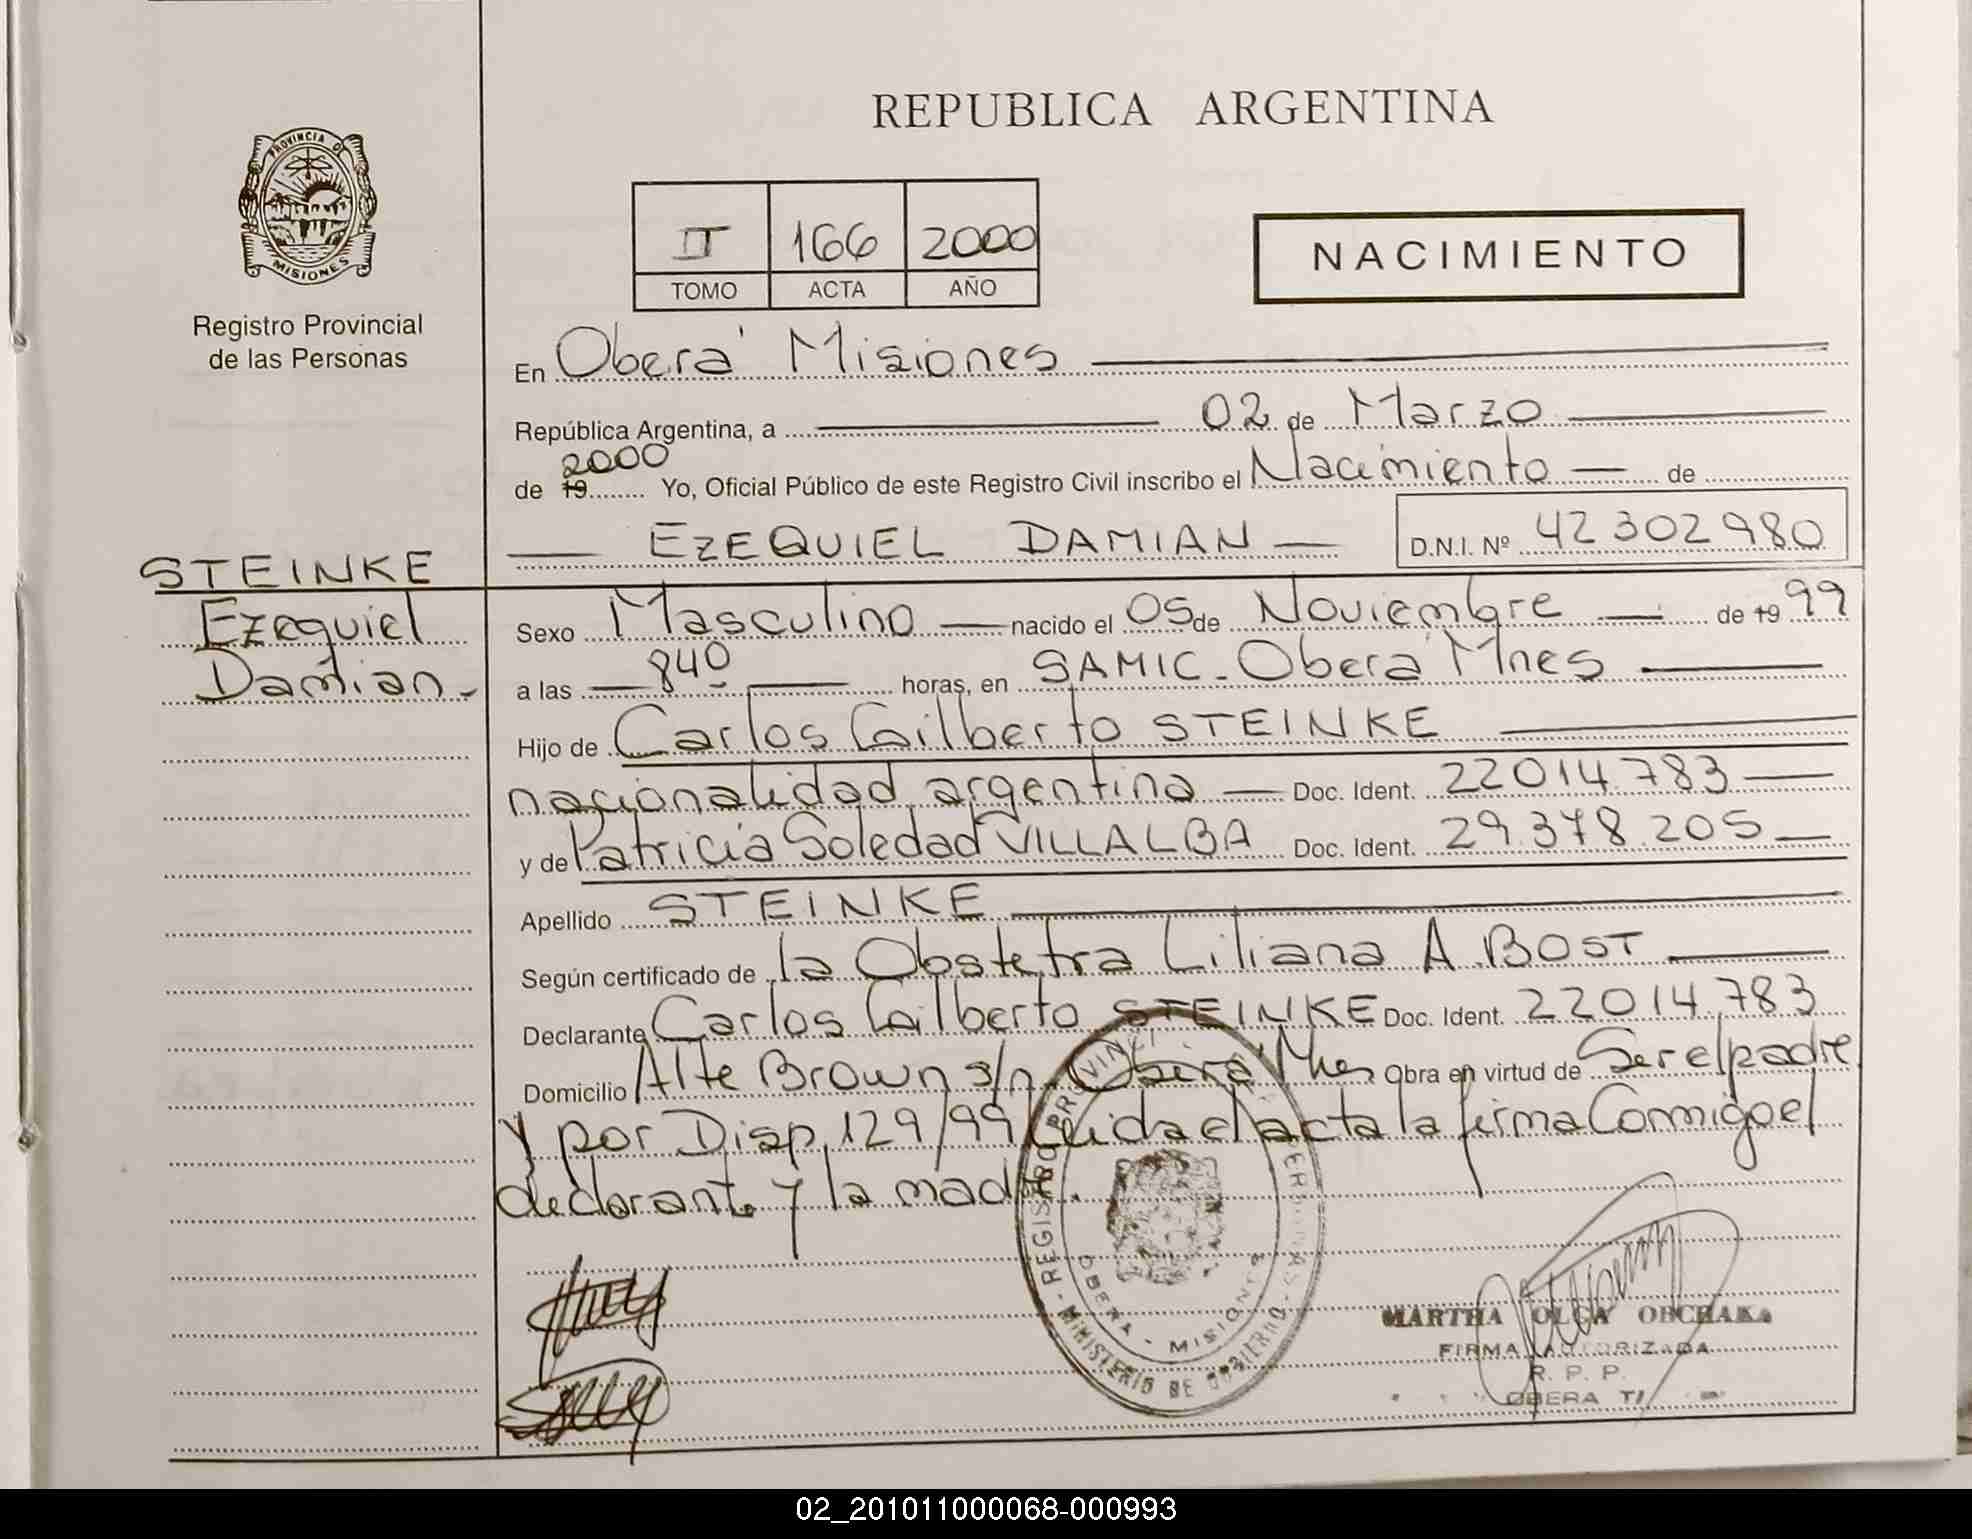 REPUBLICA ARGENTINA
PROVINCIA DE
MISIONES
Registro Provincial
de las Personas
II 166 2000
TOMO ACTA AÑO
NACIMIENTO
En Oberá Misiones
República Argentina, a 02 de Marzo
2000
de 19 Yo, Oficial Público de este Registro Civil inscribo el Nacimiento de
EZEQUIEL DAMIAN D.N.I. Nº 42302980
STEINKE
Ezequiel
Damian.-
Sexo Masculino nacido el 05 de Noviembre de 19 99
a las 840 horas, en SAMIC - Oberá Mnes
Hijo de Carlos Gilberto STEINKE
nacionalidad argentina Doc. Ident. 22014.783
y de Patricia Soledad VILLALBA Doc. Ident. 29.378.205
Apellido STEINKE
Según certificado de la Obstetra Liliana A. BOST
Declarante Carlos Gilberto STEINKE Doc. Ident. 22014.783
Domicilio Alte Brown s/n. Oberá Mnes Obra en virtud de Ser el padre
y por Disp. 129/99 Leida el acta la firma Conmigo el
declarante y la madre.
REGISTRO PROVINCIAL
MINISTERIO DE GOBIERNO
OBERA - MISIONES
MARTHA OLGA OBCHAKA
FIRMA AUTORIZADA
R. P. P.
OBERA
02_201011000068-000993